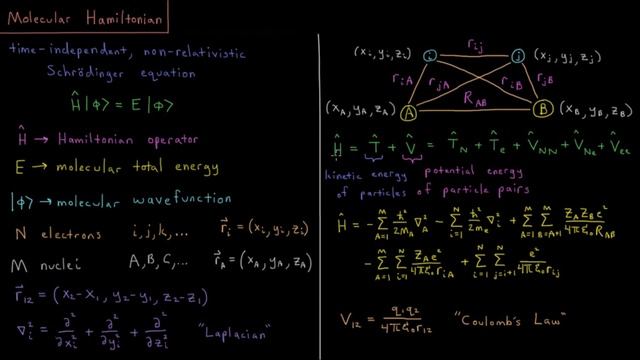 Molecular Hamiltonian
time-independent, non-relativistic
Schrödinger equation
Ĥ|ϕ⟩ = E|ϕ⟩
Ĥ → Hamiltonian operator
E → molecular total energy
|ϕ⟩ → molecular wavefunction
N electrons i, j, k, ... r⃗ᵢ = (xᵢ, yᵢ, zᵢ)
M nuclei A, B, C, ... r⃗_A = (x_A, y_A, z_A)
r⃗₁₂ = (x₂-x₁, y₂-y₁, z₂-z₁)
∇ᵢ² = ∂²/∂xᵢ² + ∂²/∂yᵢ² + ∂²/∂zᵢ² "Laplacian"
r_ij
(xᵢ, yᵢ, zᵢ) i j (x_j, y_j, z_j)
r_iA r_jA r_iB r_jB
R_AB
(x_A, y_A, z_A) A B (x_B, y_B, z_B)
Ĥ = T̂ + V̂ = T̂_N + T̂_e + V̂_NN + V̂_Ne + V̂_ee
kinetic energy potential energy
of particles of particle pairs
Ĥ = -∑_{A=1}^{M} ℏ²/2M_A ∇_A² - ∑_{i=1}^{N} ℏ²/2m_e ∇ᵢ² + ∑_{A=1}^{M} ∑_{B=A+1}^{M} Z_A Z_B e²/4πε₀R_AB
- ∑_{A=1}^{M} ∑_{i=1}^{N} Z_A e²/4πε₀r_iA + ∑_{i=1}^{N} ∑_{j=i+1}^{N} e²/4πε₀r_ij
V₁₂ = q₁q₂/4πε₀r₁₂ "Coulomb's Law"